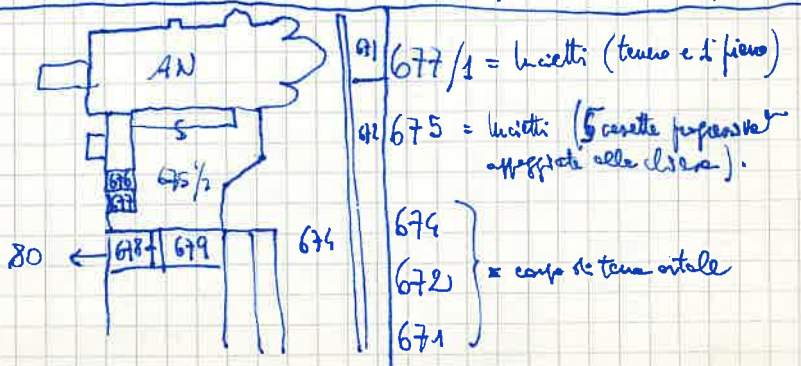 AN
S
676
677
675 1/2
678
679
674
80
671
672
677/1 = Lucietti (terreno e 1° piano)
675 = Lucietti (5 casette progressive
appoggiate alla chiesa).
674
672
671
= corpo di terra ortale